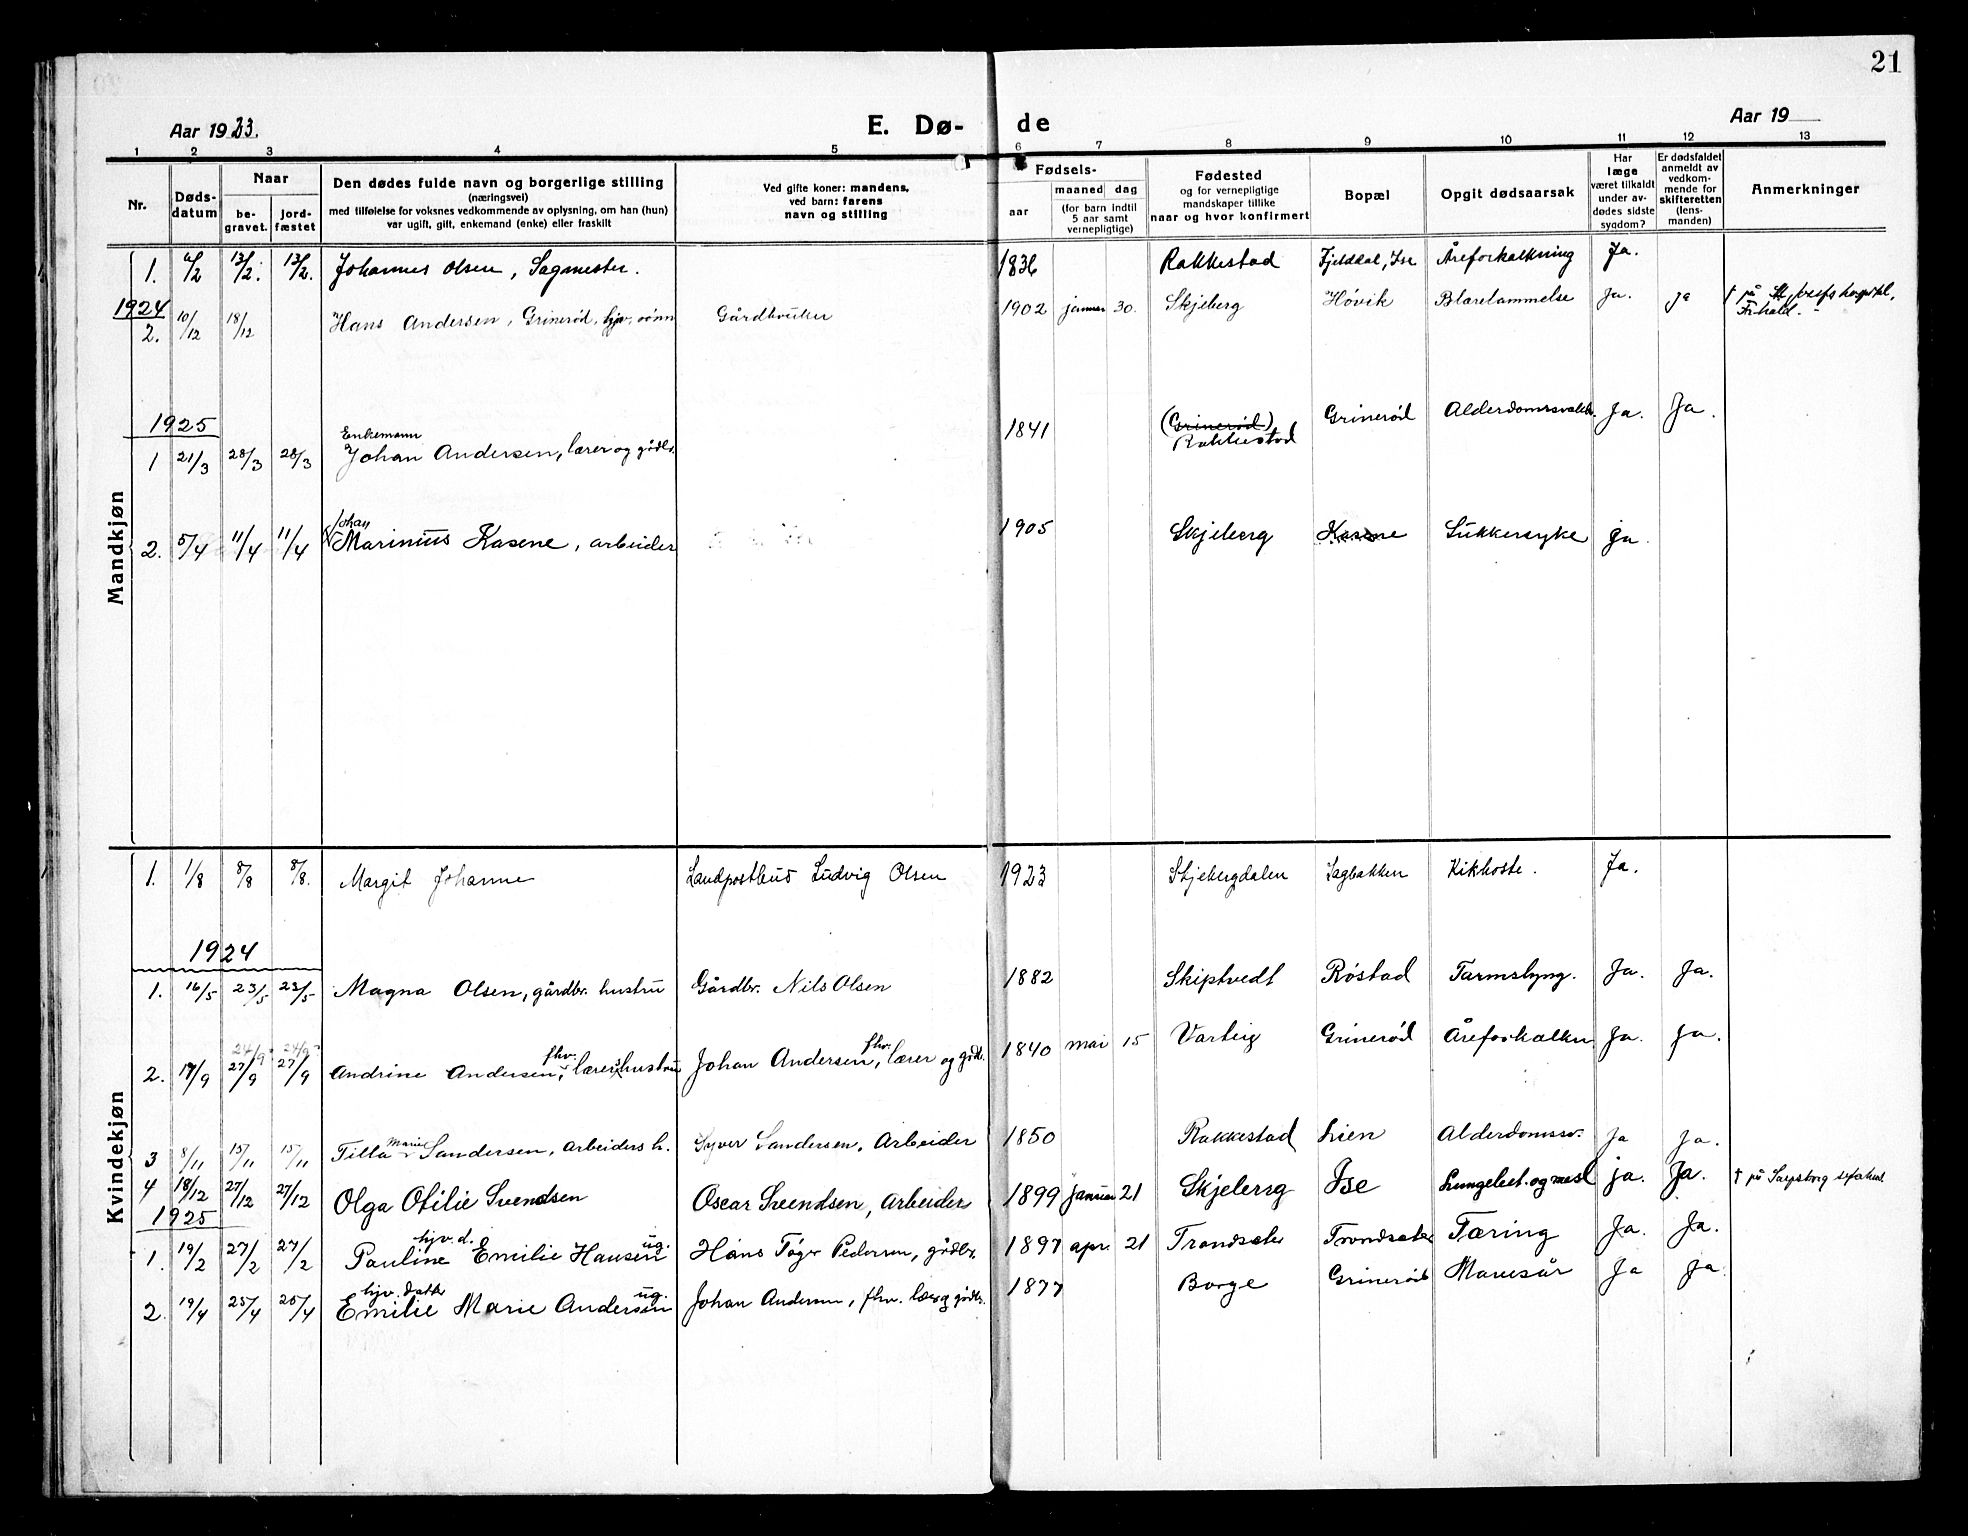 21
Aar 1923.
E. Dø- de
Aar 19
1 2 3 4 5 6 7 8 9 10 11 12 13
Nr.
Døds-datum
Naar
be-gravet.
jord-fæstet
Den dødes fulde navn og borgerlige stilling
(næringsvei)
med tilføielse for voksnes vedkommende av oplysning, om han (hun)
var ugift, gift, enkemand (enke) eller fraskilt
Ved gifte koner: mandens,
ved barn: farens
navn og stilling
Fødsels-
aar
maaned dag
(for barn indtil
5 aar samt
vernepligtige)
Fødested
og for vernepligtige
mandskaper tillike
naar og hvor konfirmert
Bopæl
Opgit dødsaarsak
Har
læge
været tilkaldt
under av-
dødes sidste
sygdom?
Er dødsfaldet
anmeldt av
vedkom-
mende for
skifteretten
(lens-
manden)
Anmerkninger
Mandkjøn
1. 13/2. 13/2. Johannes Olsen, Sagmester. 1836 Rakkestad Fjelddal, Ise Åreforkalkning Ja.
1924
2. 10/12 18/12 Hans Andersen, Grinerød, hjv. sønn Gårdbruker 1902 januar 30. Skjeberg Høvik Blærelammelse Ja. ja † på St. Josefs hospital,
Fr.hald.
1925
Enkemann
1 21/3 28/3 28/3 Johan Andersen, lærer og gårdb. 1841 (Grinerød) Grinerød Alderdomssvakh. Ja. Ja.
Rakkestad
Johan
2. 5/4 11/4 11/4 Marinius Kasene, arbeider 1905 Skjeberg Kasene Sukkersyke ja
Kvindekjøn
1. 1/8 8/8 8/8. Margit Johanne Landpostbud Ludvig Olsen 1923 Skjebergdalen Sagbakken Kikhoste. Ja.
1924
1. 16/5 23/5 23/5 Magna Olsen, gårdbr. hustru Gårdbr. Nils Olsen 1882 Skiptvedt Røstad Tarmslyng. Ja. Ja.
24/9 24/9
2. 17/9 27/9 27/9 Andrine Andersen, fhv. lærers hustru Johan Andersen, fhv. lærer og gdb. 1840 mai 15 Varteig Grinerød Åreforkalkn Ja. Ja.
3 8/11 15/11 15/11 Tilla Marie Sandersen, arbeiders h. Syver Sandersen, Arbeider 1850 Rakkestad Lien Alderdomssv. Ja Ja.
4 18/12 27/12 27/12 Olga Otilie Svendsen Oscar Svendsen, Arbeider 1899 januar 21 Skjeberg Ise Lungebet. og mesl. ja. Ja. † på Sarpsborg sykehus
1925
hjv. d. ug.
1. 19/2 27/2 27/2 Pauline Emilie Hansen Hans Tøger Pedersen, gårdbr. 1897 apr. 21 Trondsater Trondsater Tæring Ja. Ja.
hjv. datter ug.
2. 19/4 25/4 25/4 Emilie Marie Andersen Johan Andersen, fhv. lærer og gårdbr. 1877 Borge Grinerød Mavesår Ja Ja